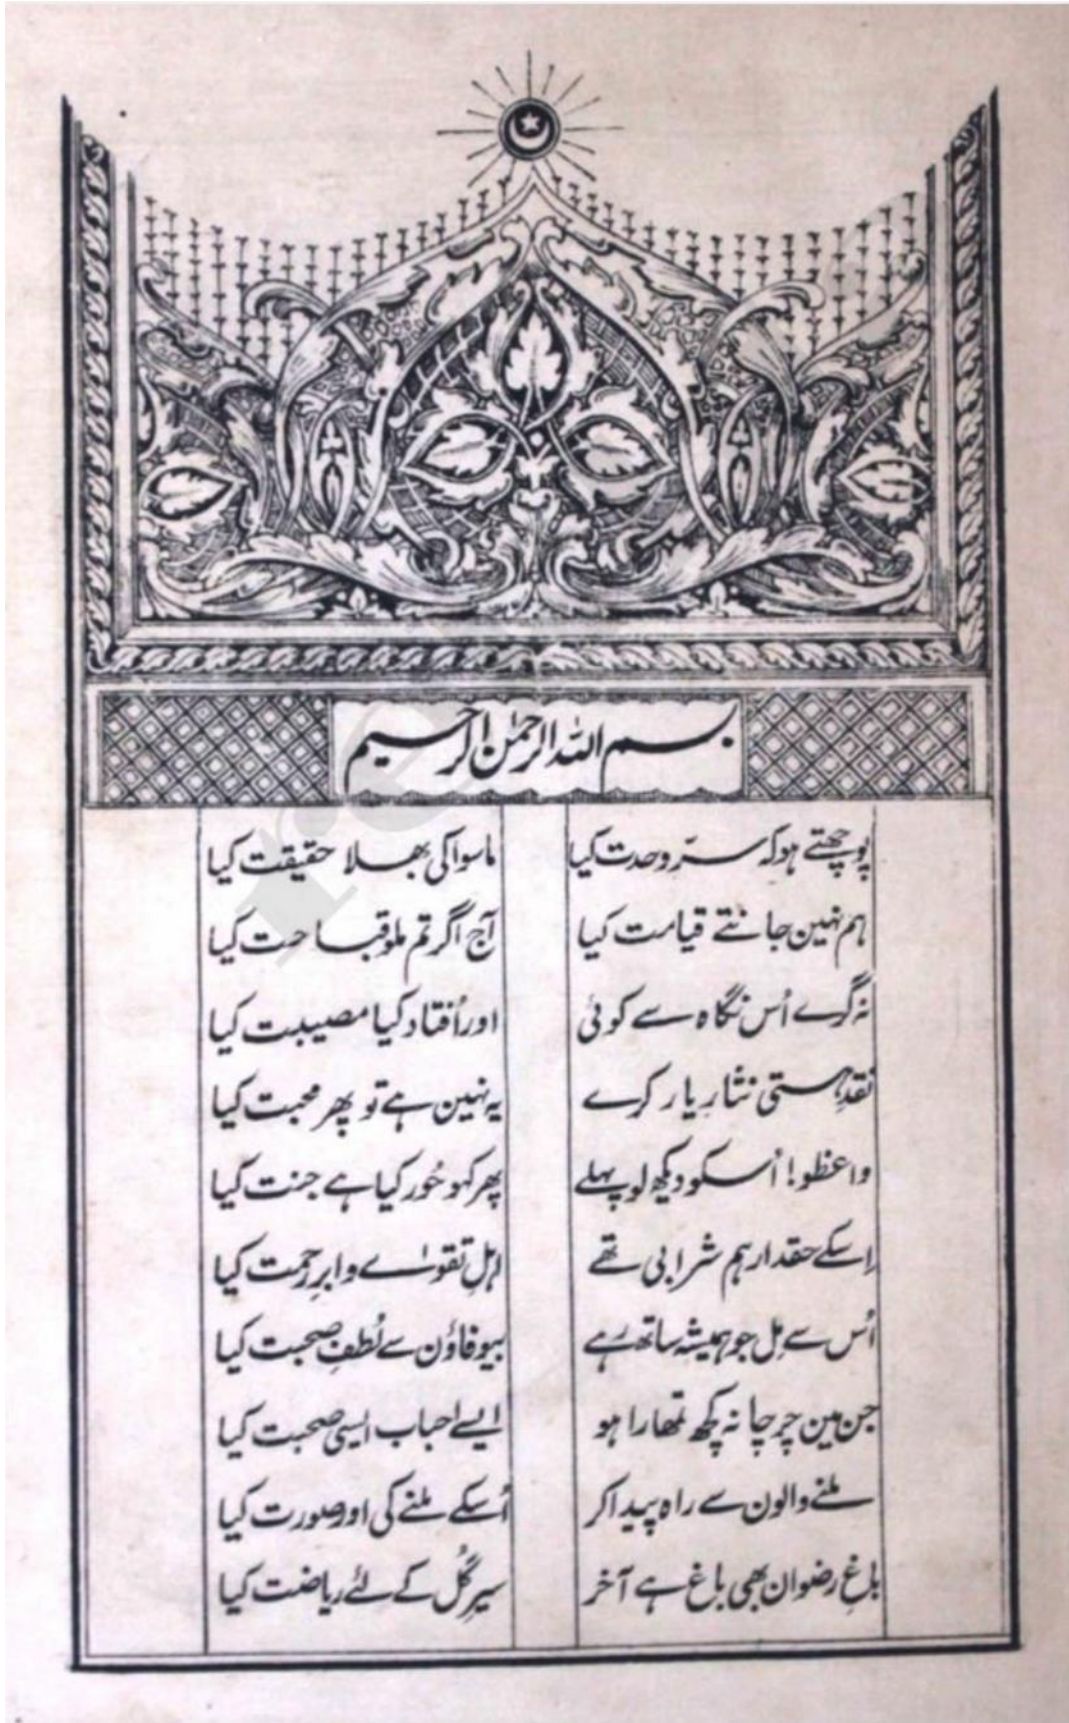 بسم اللہ الرحمٰن الرحیم
پوچھتے ہو کہ سرّ وحدت کیا ماسوا کی بھلا حقیقت کیا
ہم نہین جانتے قیامت کیا آج اگر تم ملو قباحت کیا
نہ گرے اُس نگاہ سے کوئی اور اُفتاد کیا مصیبت کیا
نقدِ ہستی نثارِ یار کرے یہ نہین ہے تو پھر محبت کیا
واعظو! اُسکو دیکھ لو پہلے پھر کہو حُور کیا ہے جنت کیا
اِسکے حقدار ہم شرابی تھے اہلِ تقوےٰ و ابرِ رحمت کیا
اُس سے مِل جو ہمیشہ ساتھ رہے بیوفاؤن سے لُطفِ صحبت کیا
جن مین چرچا نہ کچھ تمھارا ہو ایسے احباب ایسی صحبت کیا
ملنے والون سے راہ پیدا کر اُسکے ملنے کی اور صورت کیا
باغِ رضوان بھی باغ ہے آخر سیرِ گُل کے لئے ریاضت کیا